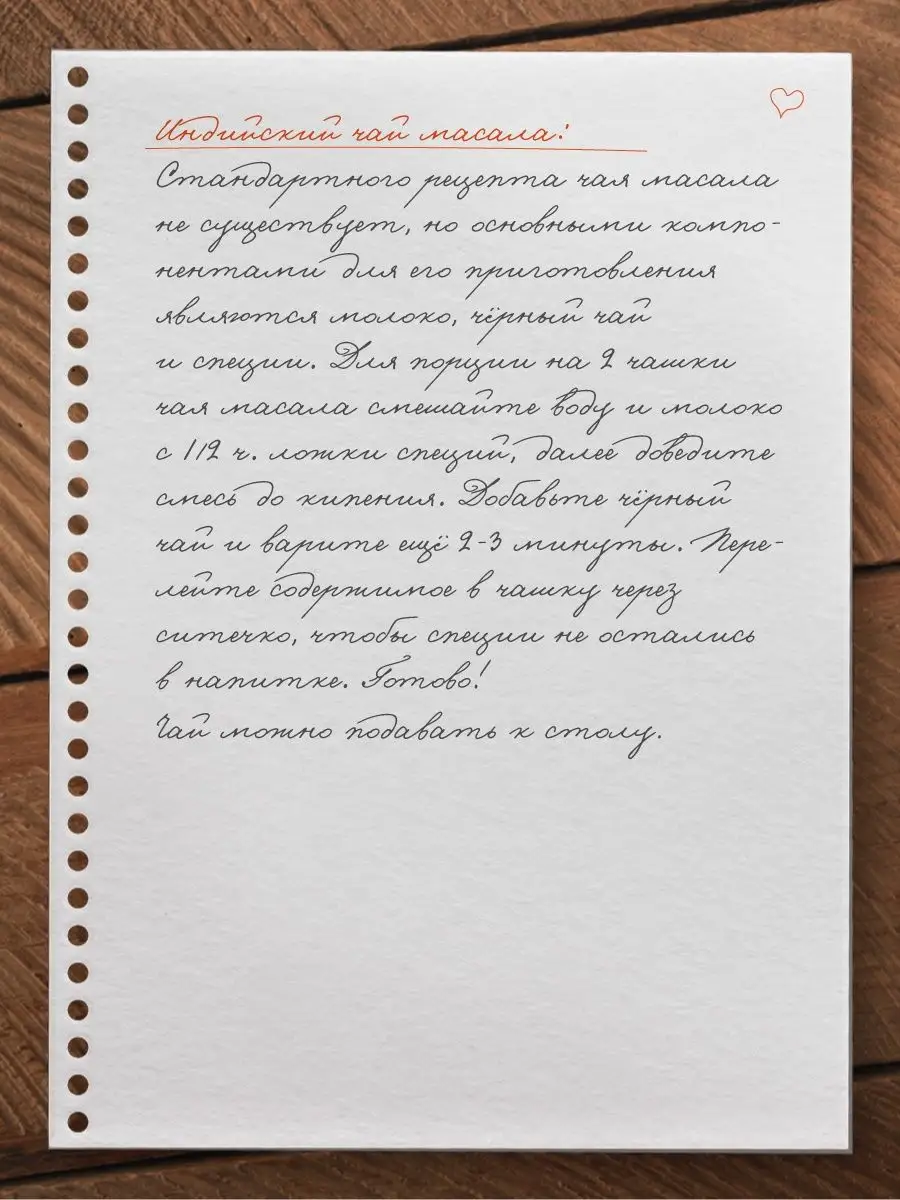 Индийский чай масала:
Стандартного рецепта чая масала
не существует, но основными компо-
нентами для его приготовления
являются молоко, чёрный чай
и специи. Для порции на 2 чашки
чая масала смешайте воду и молоко
с 1/2 ч. ложки специй, далее доведите
смесь до кипения. Добавьте чёрный
чай и варите ещё 2-3 минуты. Пере-
лейте содержимое в чашку через
ситечко, чтобы специи не остались
в напитке. Готово!
Чай можно подавать к столу.